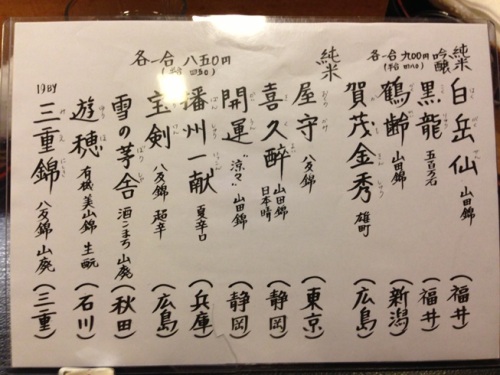 純米
吟醸
各一合 九〇〇円
白岳仙 山田錦 (福井)
黒龍 五百万石 (福井)
鶴齢 山田錦 (新潟)
賀茂金秀 雄町 (広島)
純米
各一合 八五〇円
屋守 八反錦 (東京)
喜久酔 山田錦 日本晴 (静岡)
開運 "涼々" 山田錦 (静岡)
播州一献 夏辛口 (兵庫)
宝剣 八反錦 超辛 (広島)
雪の茅舎 酒こまち 山廃 (秋田)
遊穂 有機美山錦 生酛 (石川)
19BY
三重錦 八反錦 山廃 (三重)